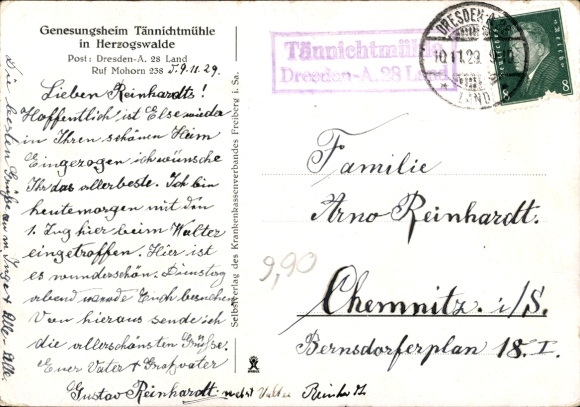 Genesungsheim Tännichtmühle
in Herzogswalde
Post: Dresden-A. 28 Land
Ruf Mohorn 238
d. 9.11.29.
Lieben Reinhardts!
Hoffentlich ist Else wieder
in Ihren schönen Heim
Eingezogen ich wünsche
Ihr das allerbeste. Ich bin
heutemorgen mit den
1. Zug hier beim Walter
eingetroffen. Hier ist
es wunderschön. Dienstag
abend werde Euch besuchen
Von hieraus sende ich
die allerschönsten Grüße.
Euer Vater + Großvater
Gustav Reinhardt. nebst Walter Reinhardt
Die besten Grüße an
Selbstverlag des Krankenkassenverbandes Freiberg i. Sa.
Tännichtmühle
Dresden-A. 28 Land
DRESDEN
10.11.29
LAND
8 8
Familie
Arno Reinhardt.
9,90
Chemnitz. i/S.
Bernsdorferplan 18. I.